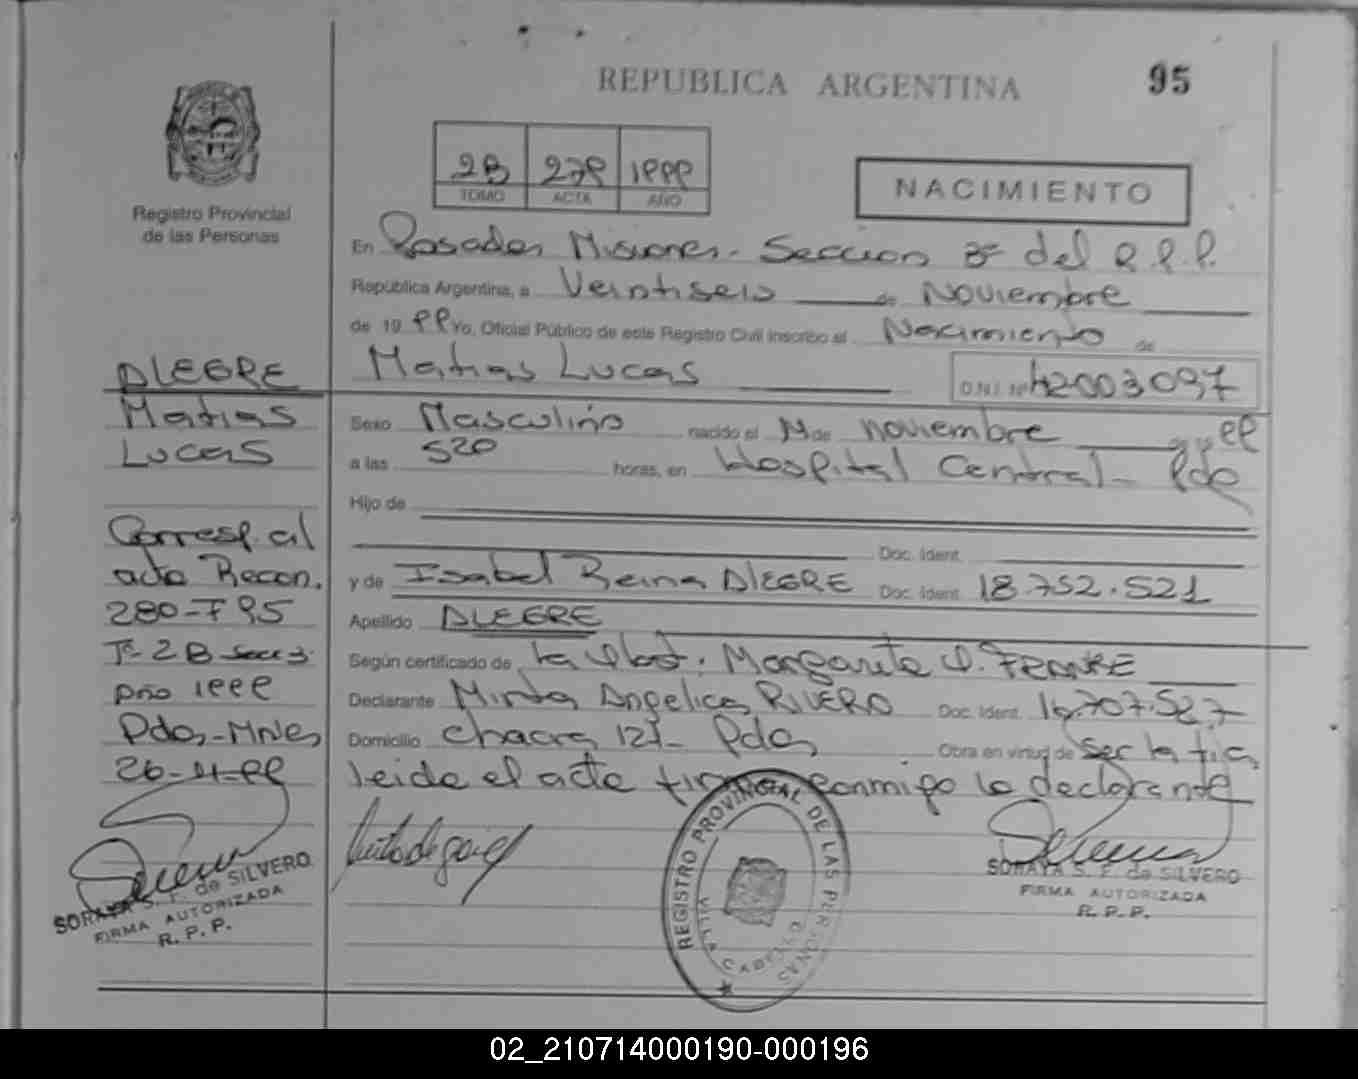 REPUBLICA ARGENTINA
95
Registro Provincial
de las Personas
2B 279 1999
TOMO ACTA AÑO
NACIMIENTO
En Posadas Misiones - Seccion 3ª del R.P.P.
República Argentina, a Veintiseis de Noviembre
de 19 99 Yo, Oficial Público de este Registro Civil inscribo el Nacimiento de
Matias Lucas D.N.I. Nº 42003097
Sexo Masculino nacido el de noviembre 99
a las 520 horas, en Hospital Central - Pdas
Hijo de
Doc. Ident.
y de Isabel Reina ALEGRE Doc. Ident. 18.752.521
Apellido ALEGRE
Según certificado de la Obst. Margarita FRANKE
Declarante Mirta Angelica RIVERO Doc. Ident. 707.527
Domicilio chacra 121 - Pdas Obra en virtud de ser la tia
leida el acta firma conmigo la declarante
ALEGRE
Matias
Lucas
Corresp. al
acta Recon.
280 - F 95
Tº 2B Secc 3
Año 1999
Pdas - Mnes
26-11-99
SORAYA S. F. de SILVERO
FIRMA AUTORIZADA
R. P. P.
REGISTRO PROVINCIAL DE LAS PERSONAS
VILLA CABELLO
SORAYA S. F. de SILVERO
FIRMA AUTORIZADA
R. P. P.
02_210714000190-000196